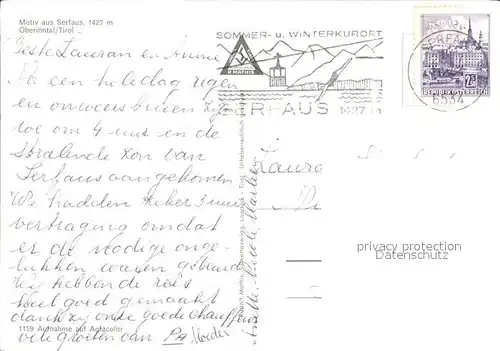 Motiv aus Serfaus, 1427 m
Oberinntal/Tirol
SOMMER- u. WINTERKURORT
SERFAUS 1427 m
6534
REPUBLIK ÖSTERREICH
Beste Lauran en Annie
Na een hele dag regen
en onweersbuien zijn
we om 4 uur en de
stralende zon van
Serfaus aangekomen
We hadden zeker 3 uur
vertraging omdat
er de nodige onge-
lukken waren gebeurd
Wij hebben de reis
heel goed gemaakt
dankzij onze goede chauffeur
vele groeten van Pa Moeder
privacy protection
Datenschutz
1159 Aufnahme auf Agfacolor